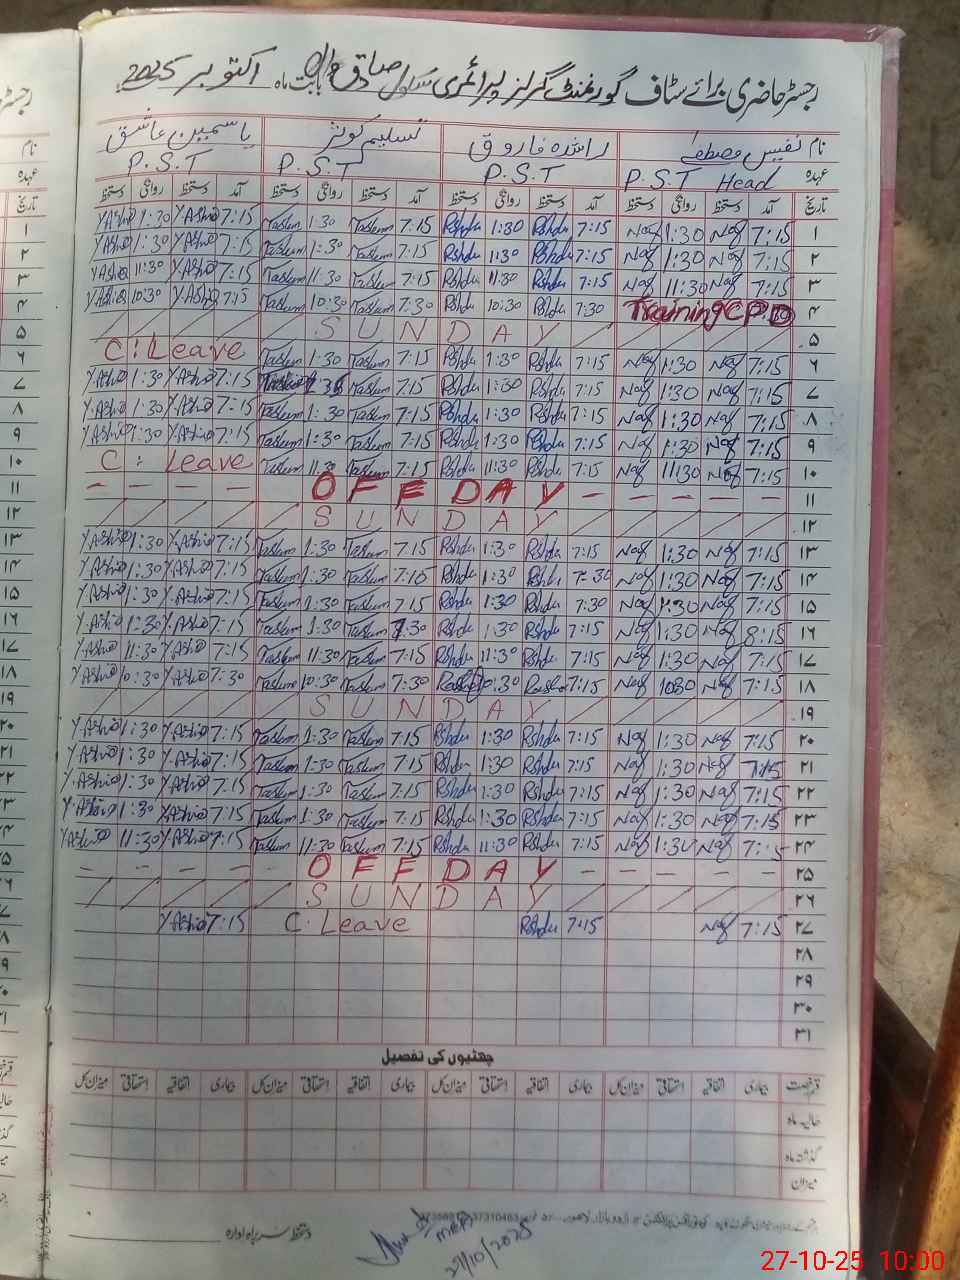 رجسٹر حاضری برائے سٹاف گورنمنٹ گرلز پرائمری سکول صادق بابت ماہ اکتوبر 2025
نام نفیس مصطفےٰ راشدہ فاروق تسلیم کوثر یاسمین عاشق
عہدہ P.S.T Head P.S.T P.S.T P.S.T
تاریخ آمد دستخط روانگی دستخط آمد دستخط روانگی دستخط آمد دستخط روانگی دستخط آمد دستخط روانگی دستخط
۱ 7:15 Naf 1:30 Naf 7:15 Rshda 1:30 Rshda 7:15 Taslum 1:30 Taslum 7:15 Y.Ashiq 1:30 Y.Ashiq
۲ 7:15 Naf 1:30 Naf 7:15 Rshda 1:30 Rshda 7:15 Taslum 1:30 Taslum 7:15 Y.Ashiq 1:30 Y.Ashiq
۳ 7:15 Naf 11:30 Naf 7:15 Rshda 11:30 Rshda 7:15 Taslum 11:30 Taslum 7:15 Y.Ashiq 11:30 Y.Ashiq
۴ Training CPD 7:30 Rshda 10:30 Rshda 7:30 Taslum 10:30 Taslum 7:15 Y.Ashiq 10:30 Y.Ashiq
۵ SUNDAY
۶ 7:15 Naf 1:30 Naf 7:15 Rshda 1:30 Rshda 7:15 Taslum 1:30 Taslum C: Leave
۷ 7:15 Naf 1:30 Naf 7:15 Rshda 1:30 Rshda 7:15 Taslum 7:15 Y.Ashiq 1:30 Y.Ashiq
۸ 7:15 Naf 1:30 Naf 7:15 Rshda 1:30 Rshda 7:15 Taslum 1:30 Taslum 7:15 Y.Ashiq 1:30 Y.Ashiq
۹ 7:15 Naf 1:30 Naf 7:15 Rshda 1:30 Rshda 7:15 Taslum 1:30 Taslum 7:15 Y.Ashiq 1:30 Y.Ashiq
۱۰ 7:15 Naf 11:30 Naf 7:15 Rshda 11:30 Rshda 7:15 Taslum 11:30 Taslum C: Leave
۱۱ OFF DAY
۱۲ SUNDAY
۱۳ 7:15 Naf 1:30 Naf 7:15 Rshda 1:30 Rshda 7:15 Taslum 1:30 Taslum 7:15 Y.Ashiq 1:30 Y.Ashiq
۱۴ 7:15 Naf 1:30 Naf 7:30 Rshda 1:30 Rshda 7:15 Taslum 1:30 Taslum 7:15 Y.Ashiq 1:30 Y.Ashiq
۱۵ 7:15 Naf 1:30 Naf 7:30 Rshda 1:30 Rshda 7:15 Taslum 1:30 Taslum 7:15 Y.Ashiq 1:30 Y.Ashiq
۱۶ 8:15 Naf 1:30 Naf 7:15 Rshda 1:30 Rshda 7:30 Taslum 1:30 Taslum 7:15 Y.Ashiq 1:30 Y.Ashiq
۱۷ 7:15 Naf 1:30 Naf 7:15 Rshda 11:30 Rshda 7:15 Taslum 11:30 Taslum 7:15 Y.Ashiq 11:30 Y.Ashiq
۱۸ 7:15 Naf 10:30 Naf 7:15 Rshda 10:30 Rshda 7:30 Taslum 10:30 Taslum 7:30 Y.Ashiq 10:30 Y.Ashiq
۱۹ SUNDAY
۲۰ 7:15 Naf 1:30 Naf 7:15 Rshda 1:30 Rshda 7:15 Taslum 1:30 Taslum 7:15 Y.Ashiq 1:30 Y.Ashiq
۲۱ 7:15 Naf 1:30 Naf 7:15 Rshda 1:30 Rshda 7:15 Taslum 1:30 Taslum 7:15 Y.Ashiq 1:30 Y.Ashiq
۲۲ 7:15 Naf 1:30 Naf 7:15 Rshda 1:30 Rshda 7:15 Taslum 1:30 Taslum 7:15 Y.Ashiq 1:30 Y.Ashiq
۲۳ 7:15 Naf 1:30 Naf 7:15 Rshda 1:30 Rshda 7:15 Taslum 1:30 Taslum 7:15 Y.Ashiq 1:30 Y.Ashiq
۲۴ 7:15 Naf 1:30 Naf 7:15 Rshda 11:30 Rshda 7:15 Taslum 11:30 Taslum 7:15 Y.Ashiq 11:30 Y.Ashiq
۲۵ OFF DAY
۲۶ SUNDAY
۲۷ 7:15 Naf 7:15 Rshda C. Leave 7:15 Y.Ashiq
۲۸
۲۹
۳۰
۳۱
چھٹیوں کی تفصیل
قسم رخصت بیماری اتفاقیہ استحقاقی میزان کل بیماری اتفاقیہ استحقاقی میزان کل بیماری اتفاقیہ استحقاقی میزان کل بیماری اتفاقیہ استحقاقی میزان کل
حالیہ ماہ
گذشتہ ماہ
میزان
دستخط سربراہ ادارہ
27/10/2025
27-10-25 10:00